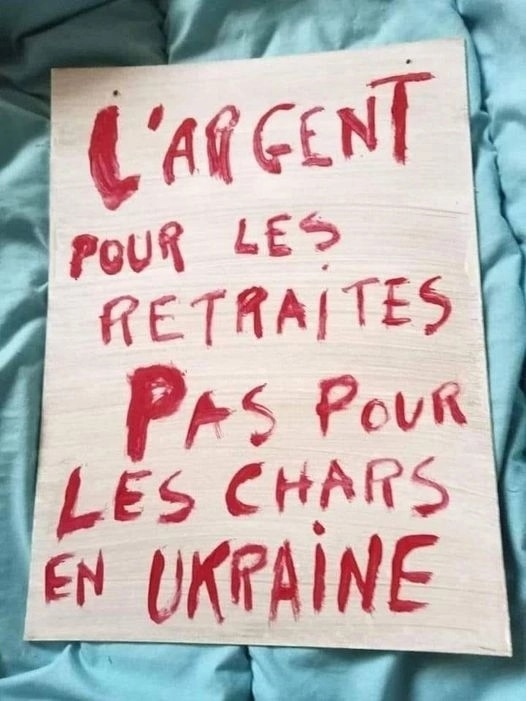 L'ARGENT
POUR LES
RETRAITES
PAS POUR
LES CHARS
EN UKRAINE